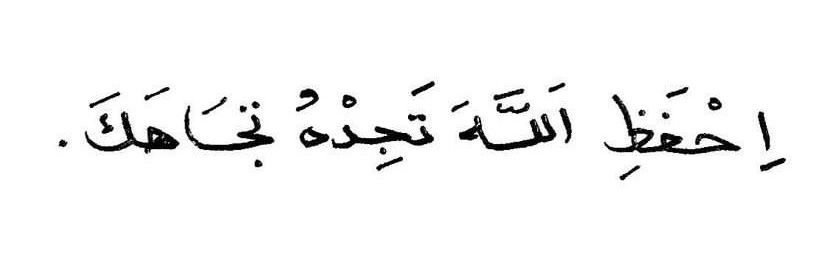 اِحْفَظِ اَللَّهَ تَجِدْهُ تجَاهَكَ.